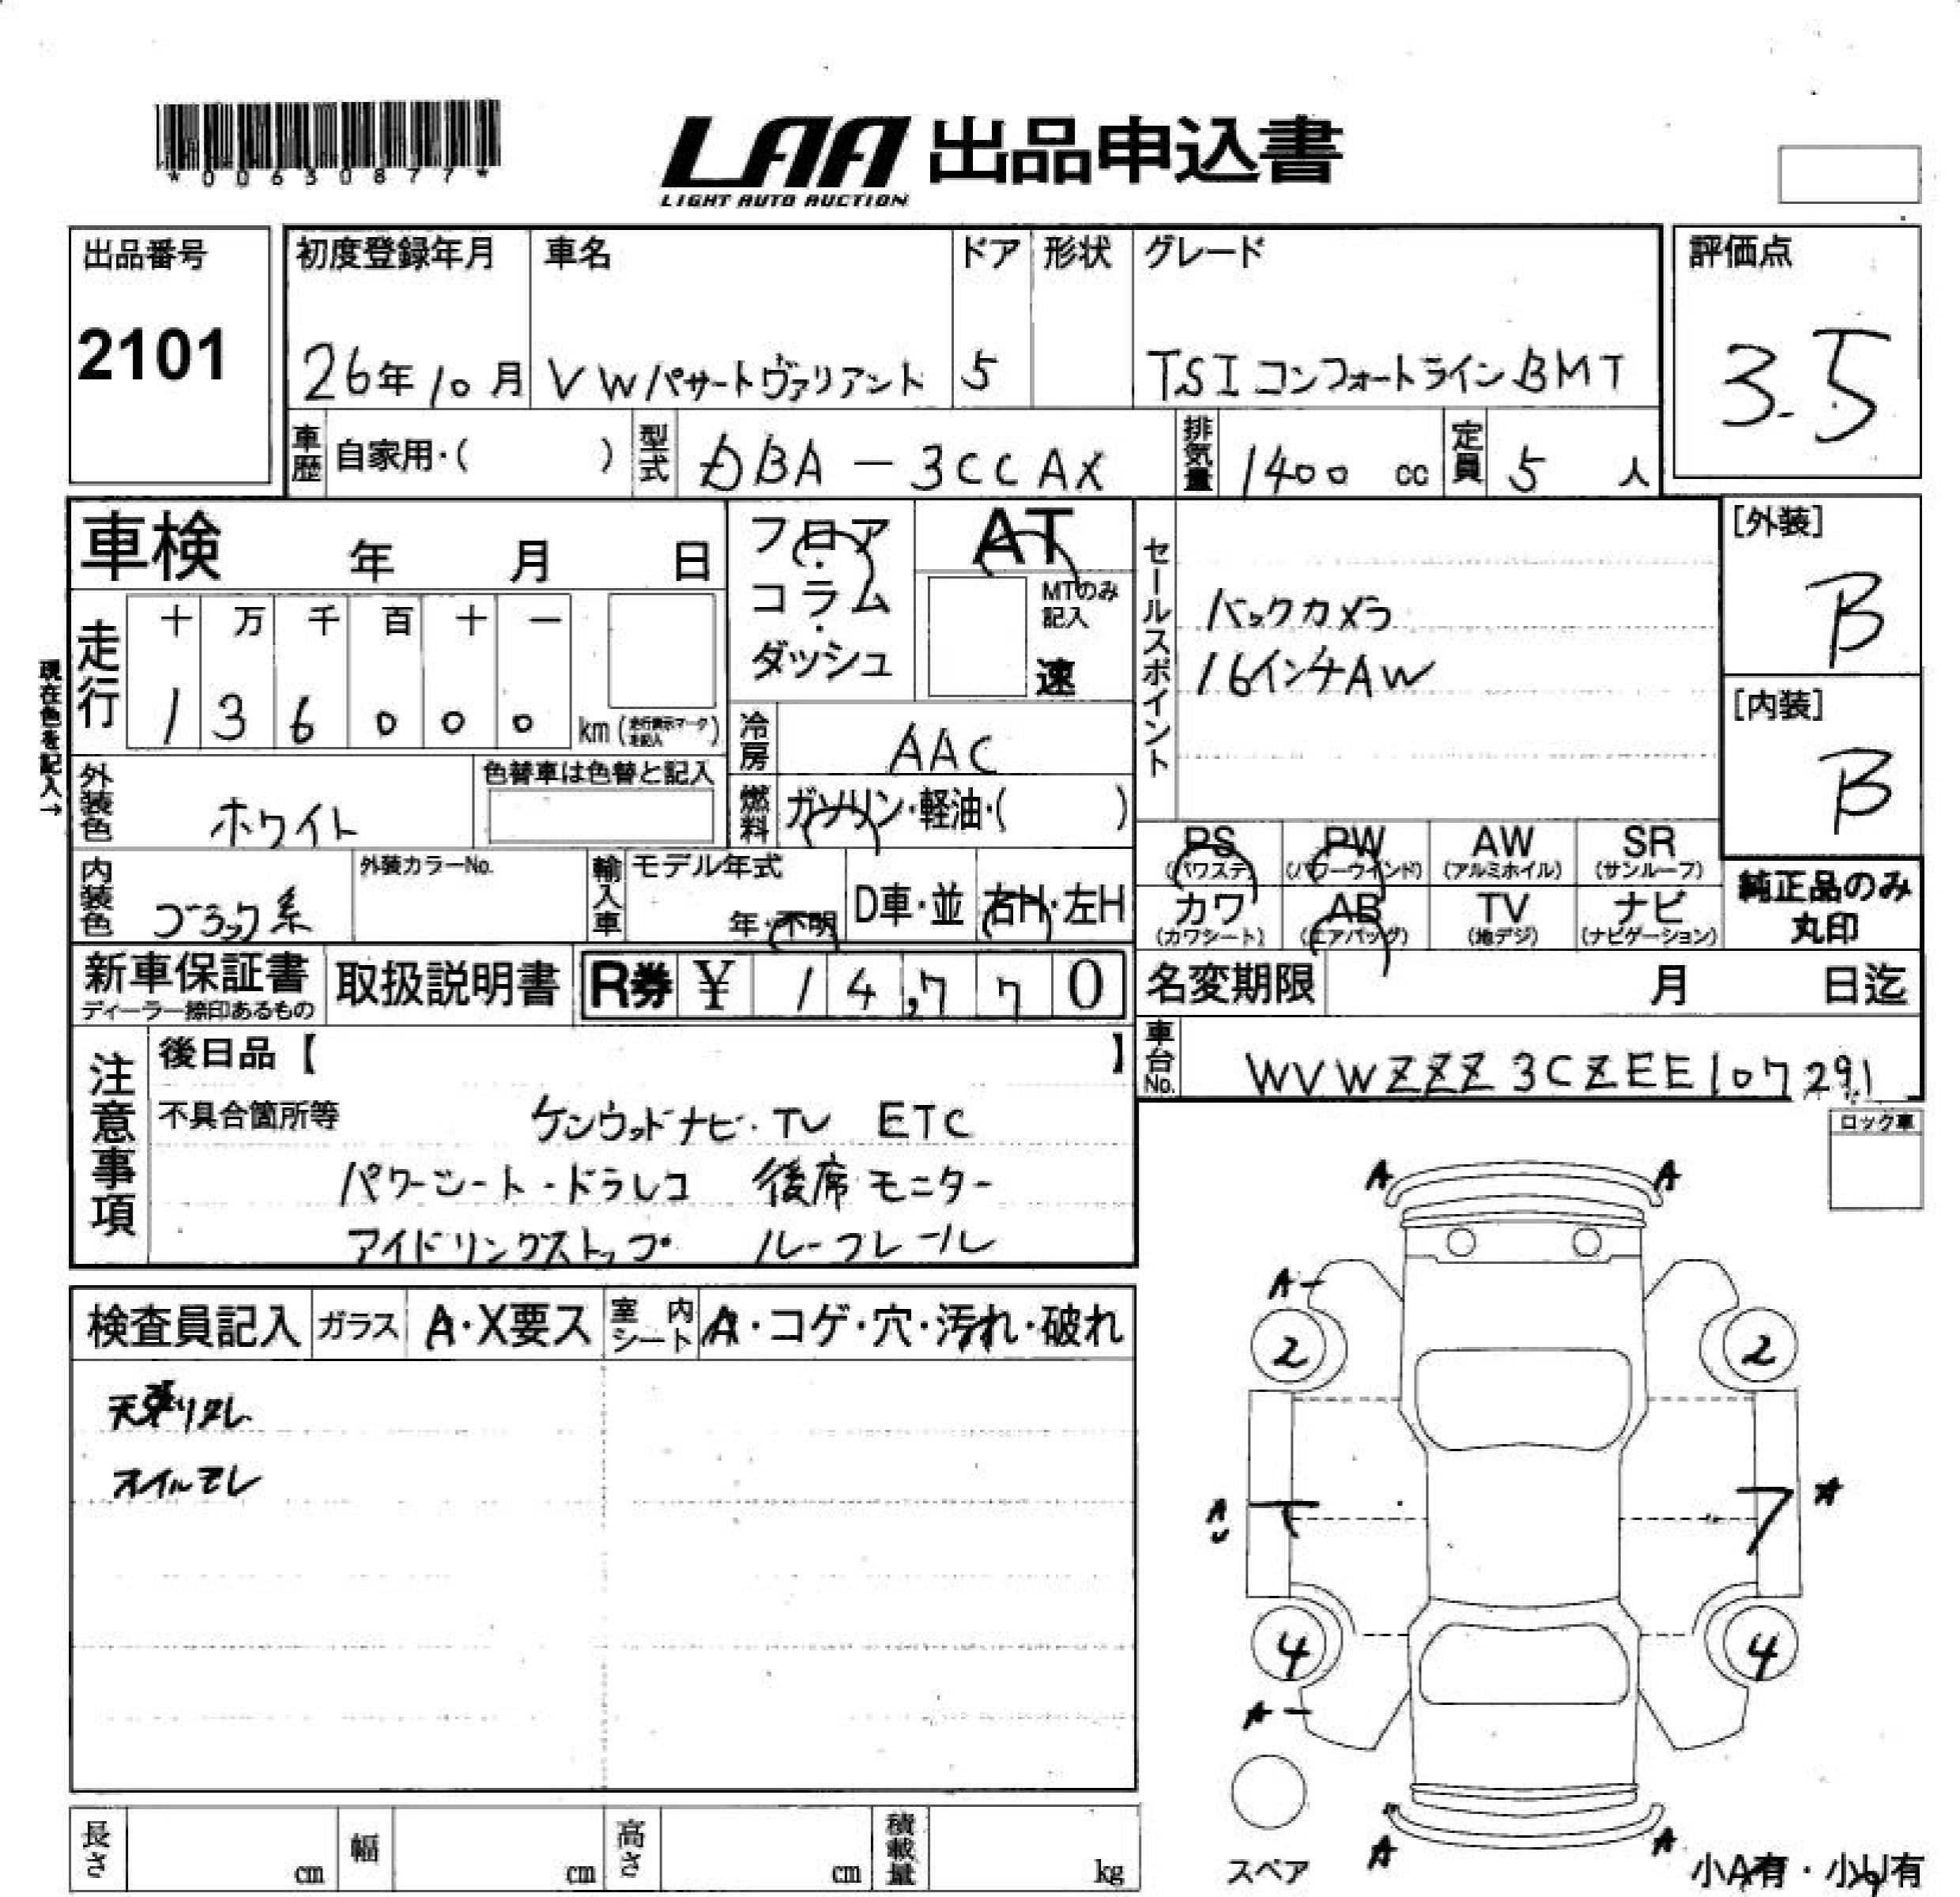 *00630877*
LAA 出品申込書
LIGHT AUTO AUCTION
出品番号
2101
初度登録年月 車名 ドア 形状 グレード
26年10月 VWパサートヴァリアント 5 TSIコンフォートラインBMT
評価点
3.5
車歴 自家用・( ) 型式 DBA-3CCAX 排気量 1400 cc 定員 5 人
車検 年 月 日
フロア・コラム・ダッシュ
AT
MTのみ記入
速
走行
十 万 千 百 十 一
1 3 6 0 0 0 km (走行表示マークを記入)
現在色を記入→
冷房 AAC
外装色 ホワイト
色替車は色替と記入
燃料 ガソリン・軽油・( )
内装色 ブラック系
外装カラーNo.
輸入車 モデル年式
年・不明 D車・並 右H・左H
セールスポイント
バックカメラ
16インチAW
PS (パワステ) PW (パワーウインド) AW (アルミホイル) SR (サンルーフ)
カワ (カワシート) AB (エアバッグ) TV (地デジ) ナビ (ナビゲーション)
[外装]
B
[内装]
B
純正品のみ
丸印
新車保証書
ディーラー捺印あるもの
取扱説明書
R券 ¥ 14,770
名変期限 月 日迄
車台No. WVWZZZ3CZEE107291
注意事項
後日品【 】
不具合箇所等 ケンウッドナビ・TV ETC
パワーシート・ドラレコ 後席モニター
アイドリングストップ ルーフレール
ロック車
検査員記入 ガラス A・X要ス 室内シート A・コゲ・穴・汚れ・破れ
天張りタレ
オイルモレ
A A
A-
2 2
A
4 4
A-
A A
スペア
小A有・小U有
長さ cm 幅 cm 高さ cm 積載量 kg